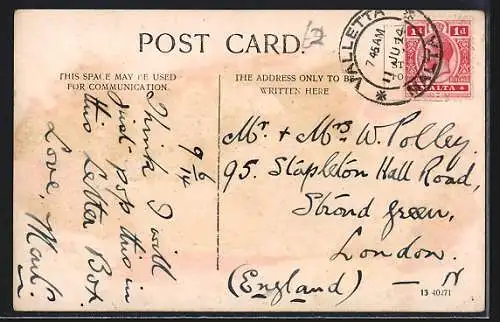 POST CARD.
THIS SPACE MAY BE USED
FOR COMMUNICATION.
THE ADDRESS ONLY TO BE
WRITTEN HERE
9/6/14
Think I will
just pop this in
this Letter Box.
Love,
Mr. & Mrs W. Polley.
95. Stapleton Hall Road,
Strond green,
London.
(England) — N
13 40271
VALLETTA
7 45 AM
11 JU 14
MALTA
1d 1d
MALTA